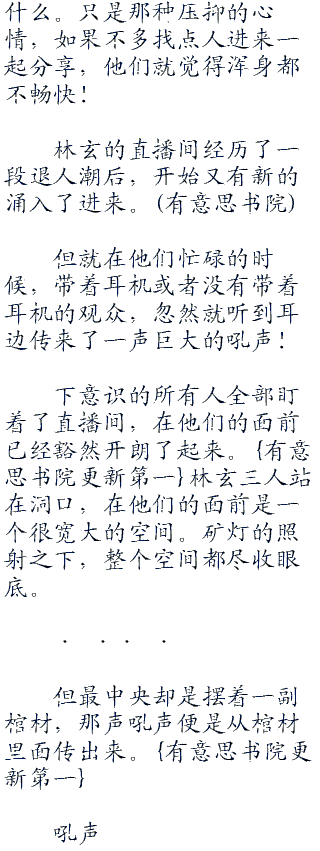 什么。只是那种压抑的心
情，如果不多找点人进来一
起分享，他们就觉得浑身都
不畅快！
林玄的直播间经历了一
段退人潮后，开始又有新的
涌入了进来。(有意思书院)
但就在他们忙碌的时
候，带着耳机或者没有带着
耳机的观众，忽然就听到耳
边传来了一声巨大的吼声！
下意识的所有人全部盯
着了直播间，在他们的面前
已经豁然开朗了起来。{有意
思书院更新第一}林玄三人站
在洞口，在他们的面前是一
个很宽大的空间。矿灯的照
射之下，整个空间都尽收眼
底。
. . . .
但最中央却是摆着一副
棺材，那声吼声便是从棺材
里面传出来。{有意思书院更
新第一}
吼声